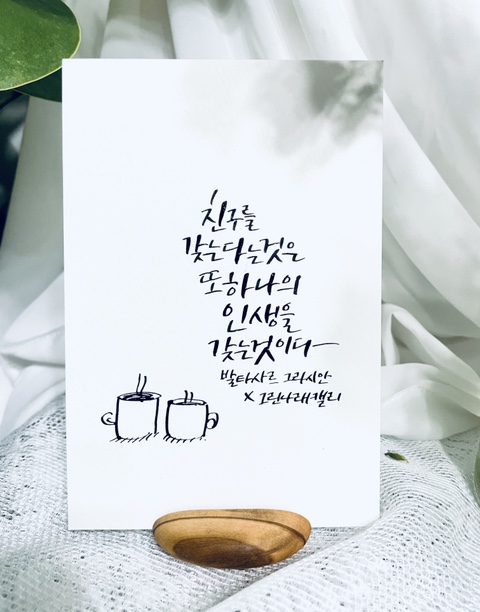 친구를
갖는다는것은
또하나의
인생을
갖는것이다
발타사르 그라시안
× 그린나래캘리